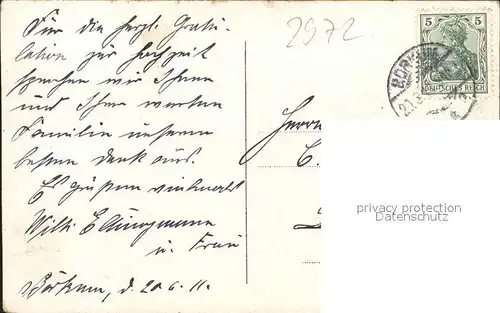 Für die herzl. Gratu-
lation zur Hochzeit
sprechen wir Ihnen
und Ihrer werten
Familie unseren
besten Dank aus.
Es grüßen vielmals
Willi
u. Frau
d. 20.6.11.
2972
5 5
DEUTSCHES REICH
Herrn
privacy protection
Datenschutz